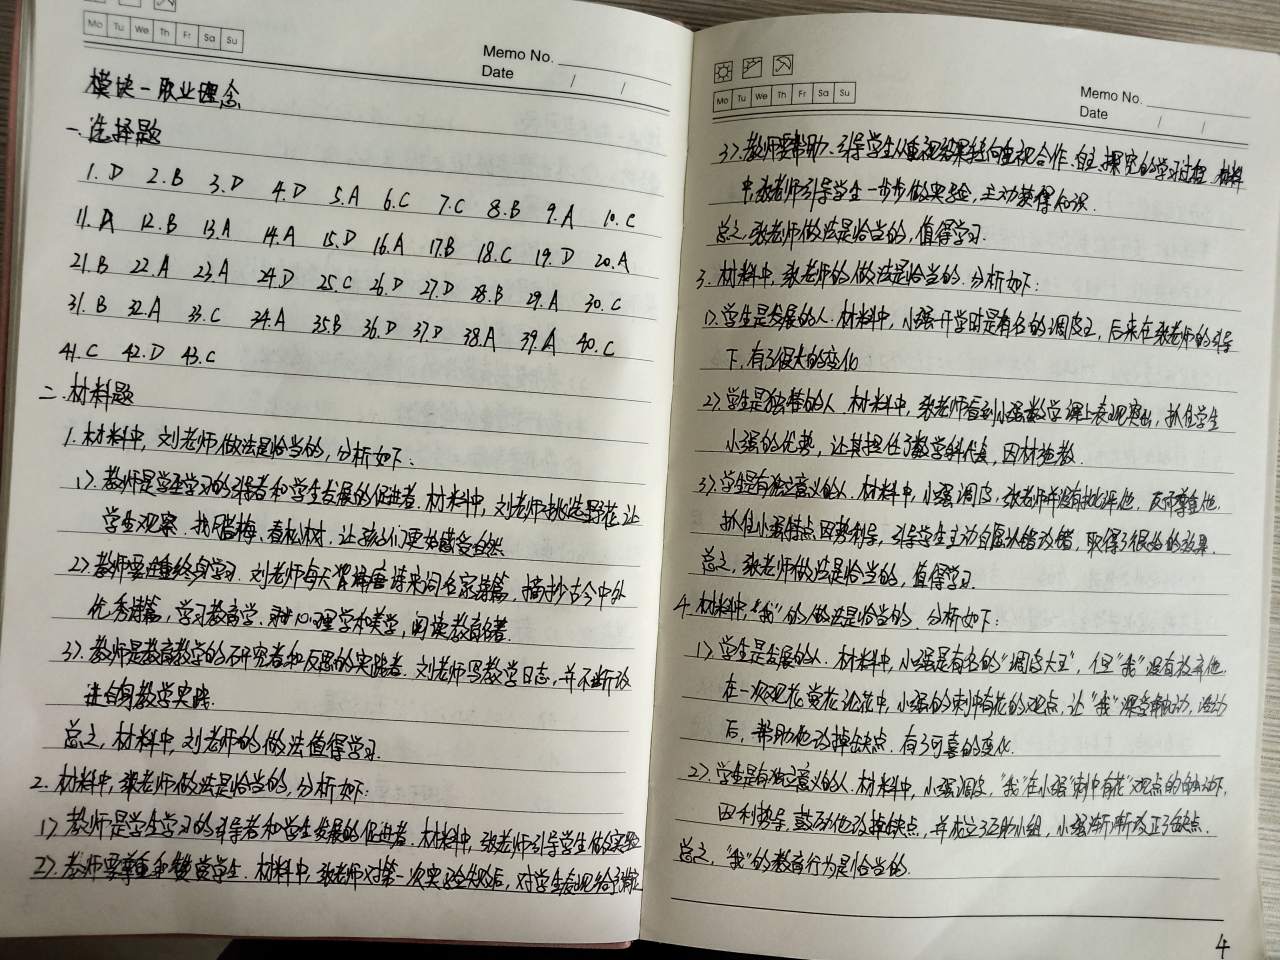 Mo Tu We Th Fr Sa Su
Memo No.
Date / /
模块一 职业理念
一.选择题
1.D 2.B 3.D 4.D 5.A 6.C 7.C 8.B 9.A 10.C
11.A 12.B 13.A 14.A 15.D 16.A 17.B 18.C 19.D 20.A
21.B 22.A 23.A 24.D 25.C 26.D 27.D 28.B 29.A 30.C
31.B 32.A 33.C 34.A 35.B 36.D 37.D 38.A 39.A 40.C
41.C 42.D 43.C
二.材料题
1.材料中,刘老师做法是恰当的,分析如下:
1).教师是学生学习的引导者和学生发展的促进者.材料中,刘老师挑选野花让
学生观察.找腊梅、看松树.让孩子们更好感受自然
2).教师要注重终身学习.刘老师每天背诵唐诗宋词名家诗篇,摘抄古今中外
优秀诗篇,学习教育学、心理学和美学,阅读教育名著.
3).教师是教育教学的研究者和反思的实践者.刘老师写教学日志,并不断改
进自身教学实践.
总之,材料中,刘老师的做法值得学习.
2.材料中,张老师做法是恰当的,分析如下:
1).教师是学生学习的引导者和学生发展的促进者.材料中,张老师引导学生做实验
2).教师要尊重和赞赏学生.材料中,张老师对第一次实验失败后,对学生表现给予肯定
Mo Tu We Th Fr Sa Su
Memo No.
Date / /
3).教师要帮助、引导学生从重视结果转向重视合作、自主、探究的学习过程.材料
中,张老师引导学生一步步做实验,主动获得知识.
总之,张老师做法是恰当的,值得学习.
3.材料中,张老师的做法是恰当的.分析如下:
1).学生是发展的人.材料中,小强开学时是有名的调皮王,后来在张老师的引导
下,有了很大的变化
2).学生是独特的人.材料中,张老师看到小强数学课上表现突出,抓住学生
小强的优势,让其担任了数学科代表,因材施教.
3).学生是有独立意义的人.材料中,小强调皮,张老师并没有批评他,反而尊重他.
抓住小强特点因势利导,引导学生主动自愿认错改错,取得了很好的效果.
总之,张老师做法是恰当的,值得学习.
4.材料中,“我”的做法是恰当的.分析如下:
1).学生是发展的人.材料中,小强是有名的“调皮大王”,但“我”没有放弃他.
在一次观花赏花论花中,小强的刺中有花的观点,让“我”深受触动,
后,帮助他改掉缺点.有了可喜的变化.
2).学生是有独立意义的人.材料中,小强调皮,“我”在小强“刺中有花”观点的触动下,
因利势导,鼓励他改掉缺点,并成立了互助小组,小强渐渐改正了缺点.
总之,“我”的教育行为是恰当的.
4